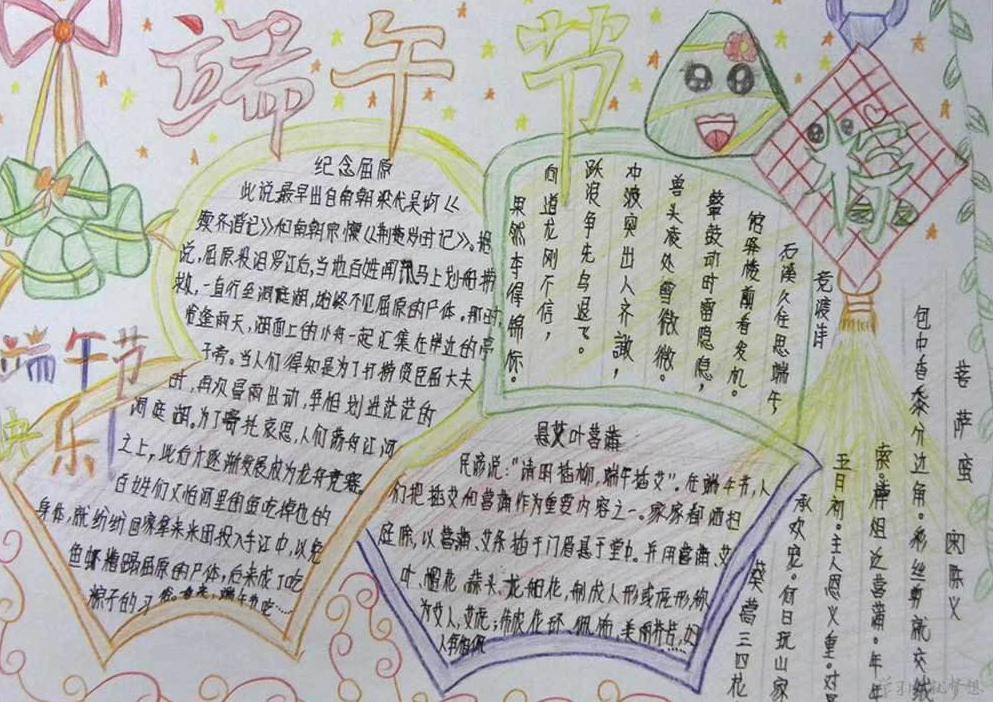 端午节
纪念屈原
此说最早出自南朝梁代吴均《
续齐谐记》和南朝宗懔《荆楚岁时记》。据
说,屈原投汨罗江后,当地百姓闻讯马上划船捞
救,一直行至洞庭湖,始终不见屈原的尸体。那时,
恰逢雨天,湖面上的小舟一起汇集在岸边的亭
子旁。当人们得知是为了打捞贤臣屈大夫
时,再次冒雨出动,争相划进茫茫的
洞庭湖。为了寄托哀思,人们荡舟江河
之上,此后才逐渐发展成为龙舟竞赛。
百姓们又怕河里的鱼吃掉他的
身体,就纷纷回家拿来米团投入于江中,以免
鱼虾糟蹋屈原的尸体,后来成了吃
粽子的习
端午节
快乐
竞渡诗
石溪久住思端午
馆驿楼前看发机。
鼙鼓动时雷隐隐,
兽头凌处雪微微。
冲波突出人齐譀,
跃浪争先鸟退飞。
向道龙刚不信,
果然夺得锦标。
悬艾叶菖蒲
民谚说:“清明插柳,端午插艾”。在端午节,人
们把插艾和菖蒲作为重要内容之一。家家都洒扫
庭除,以菖蒲、艾条插于门眉悬于堂中。并用菖蒲、艾
叶、榴花、蒜头、龙船花,制成人形或虎形称
为艾人、艾虎;
菩萨蛮
陈义
包中香黍分边角。彩丝剪就交绒
索。樽俎边菖蒲。年年
五日初。主人恩义重。对
承欢宠。何日玩山家
葵蒿三四花